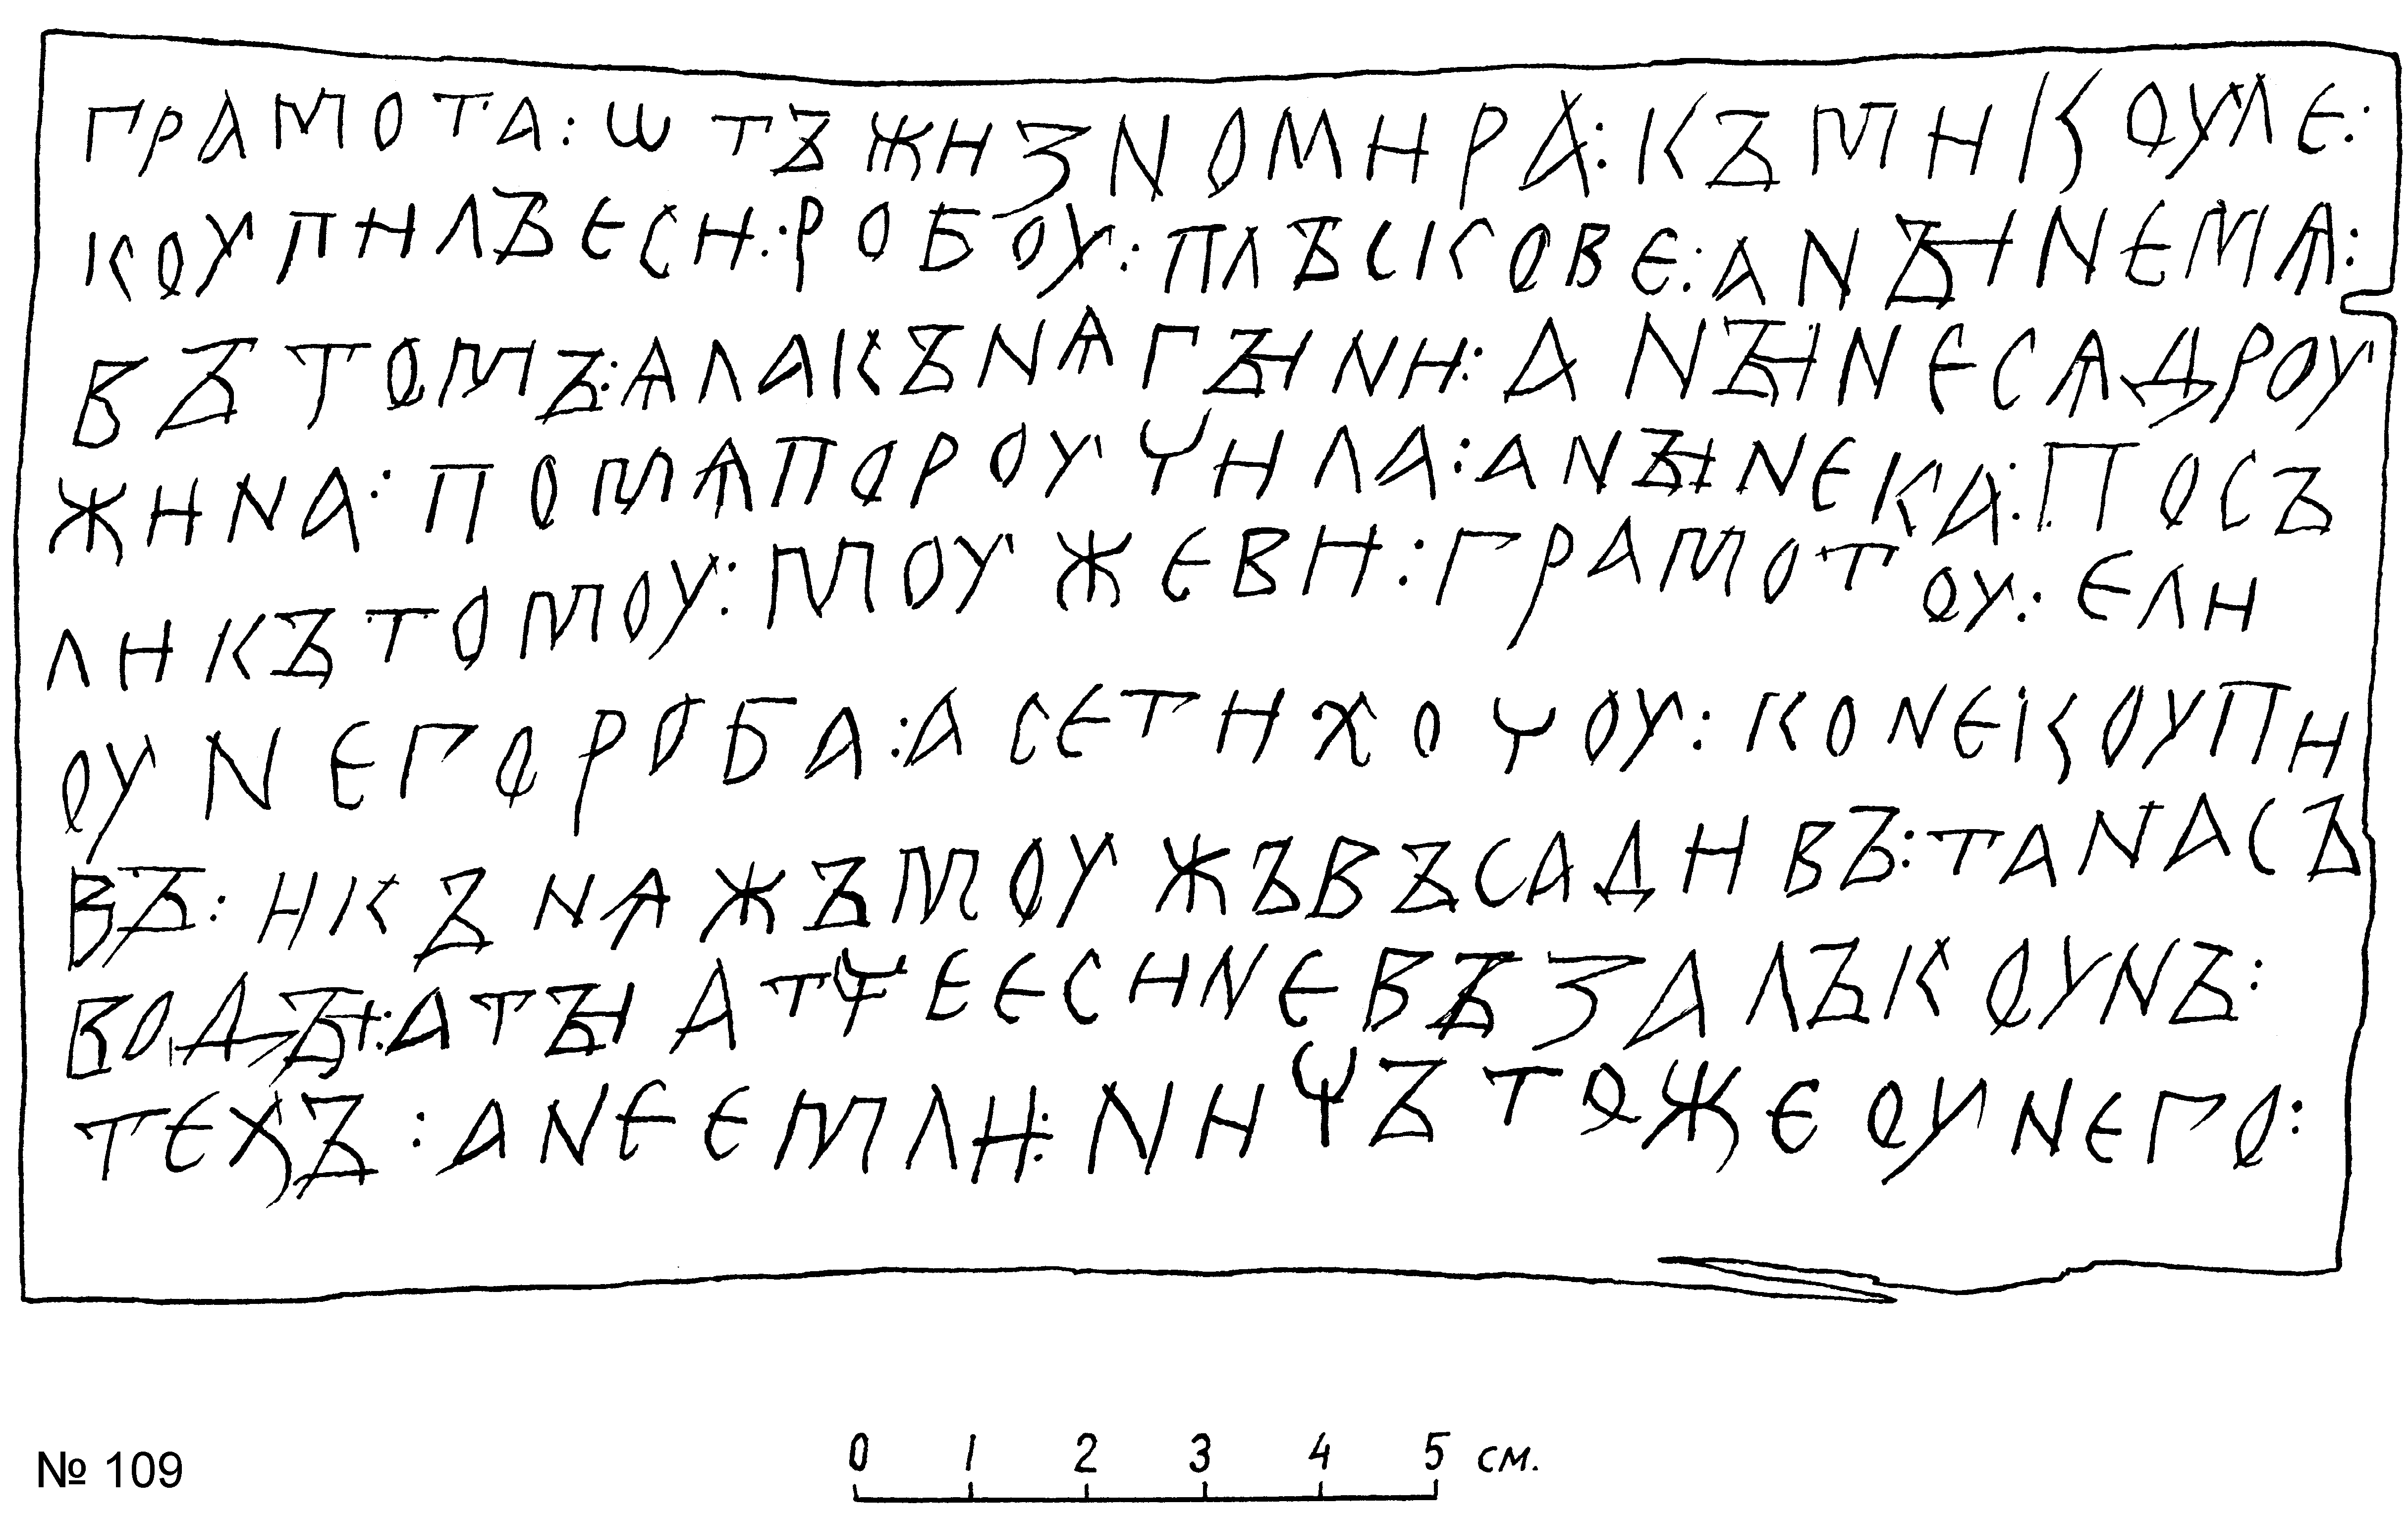 грамота : ѡтъ жизномира : къ микоуле :
коупилъ еси : робоу : плъскове : а нꙑне мѧ :
въ томъ : ѧла кънѧгꙑни : а нꙑне сѧ дроу
жина : по мѧ пороуцила : а нꙑне ка : посъ
ли къ томоу : моужеви : грамотоу : ели
оу него роба : а се ти хоцоу : коне коупи
въ : и кънѧжъ моужъ въсадивъ : та на съ
водꙑ : а тꙑ атце еси не възалъ коунъ :
техъ : а не емли : ницъто же оу него :
№ 109
0 1 2 3 4 5 см.